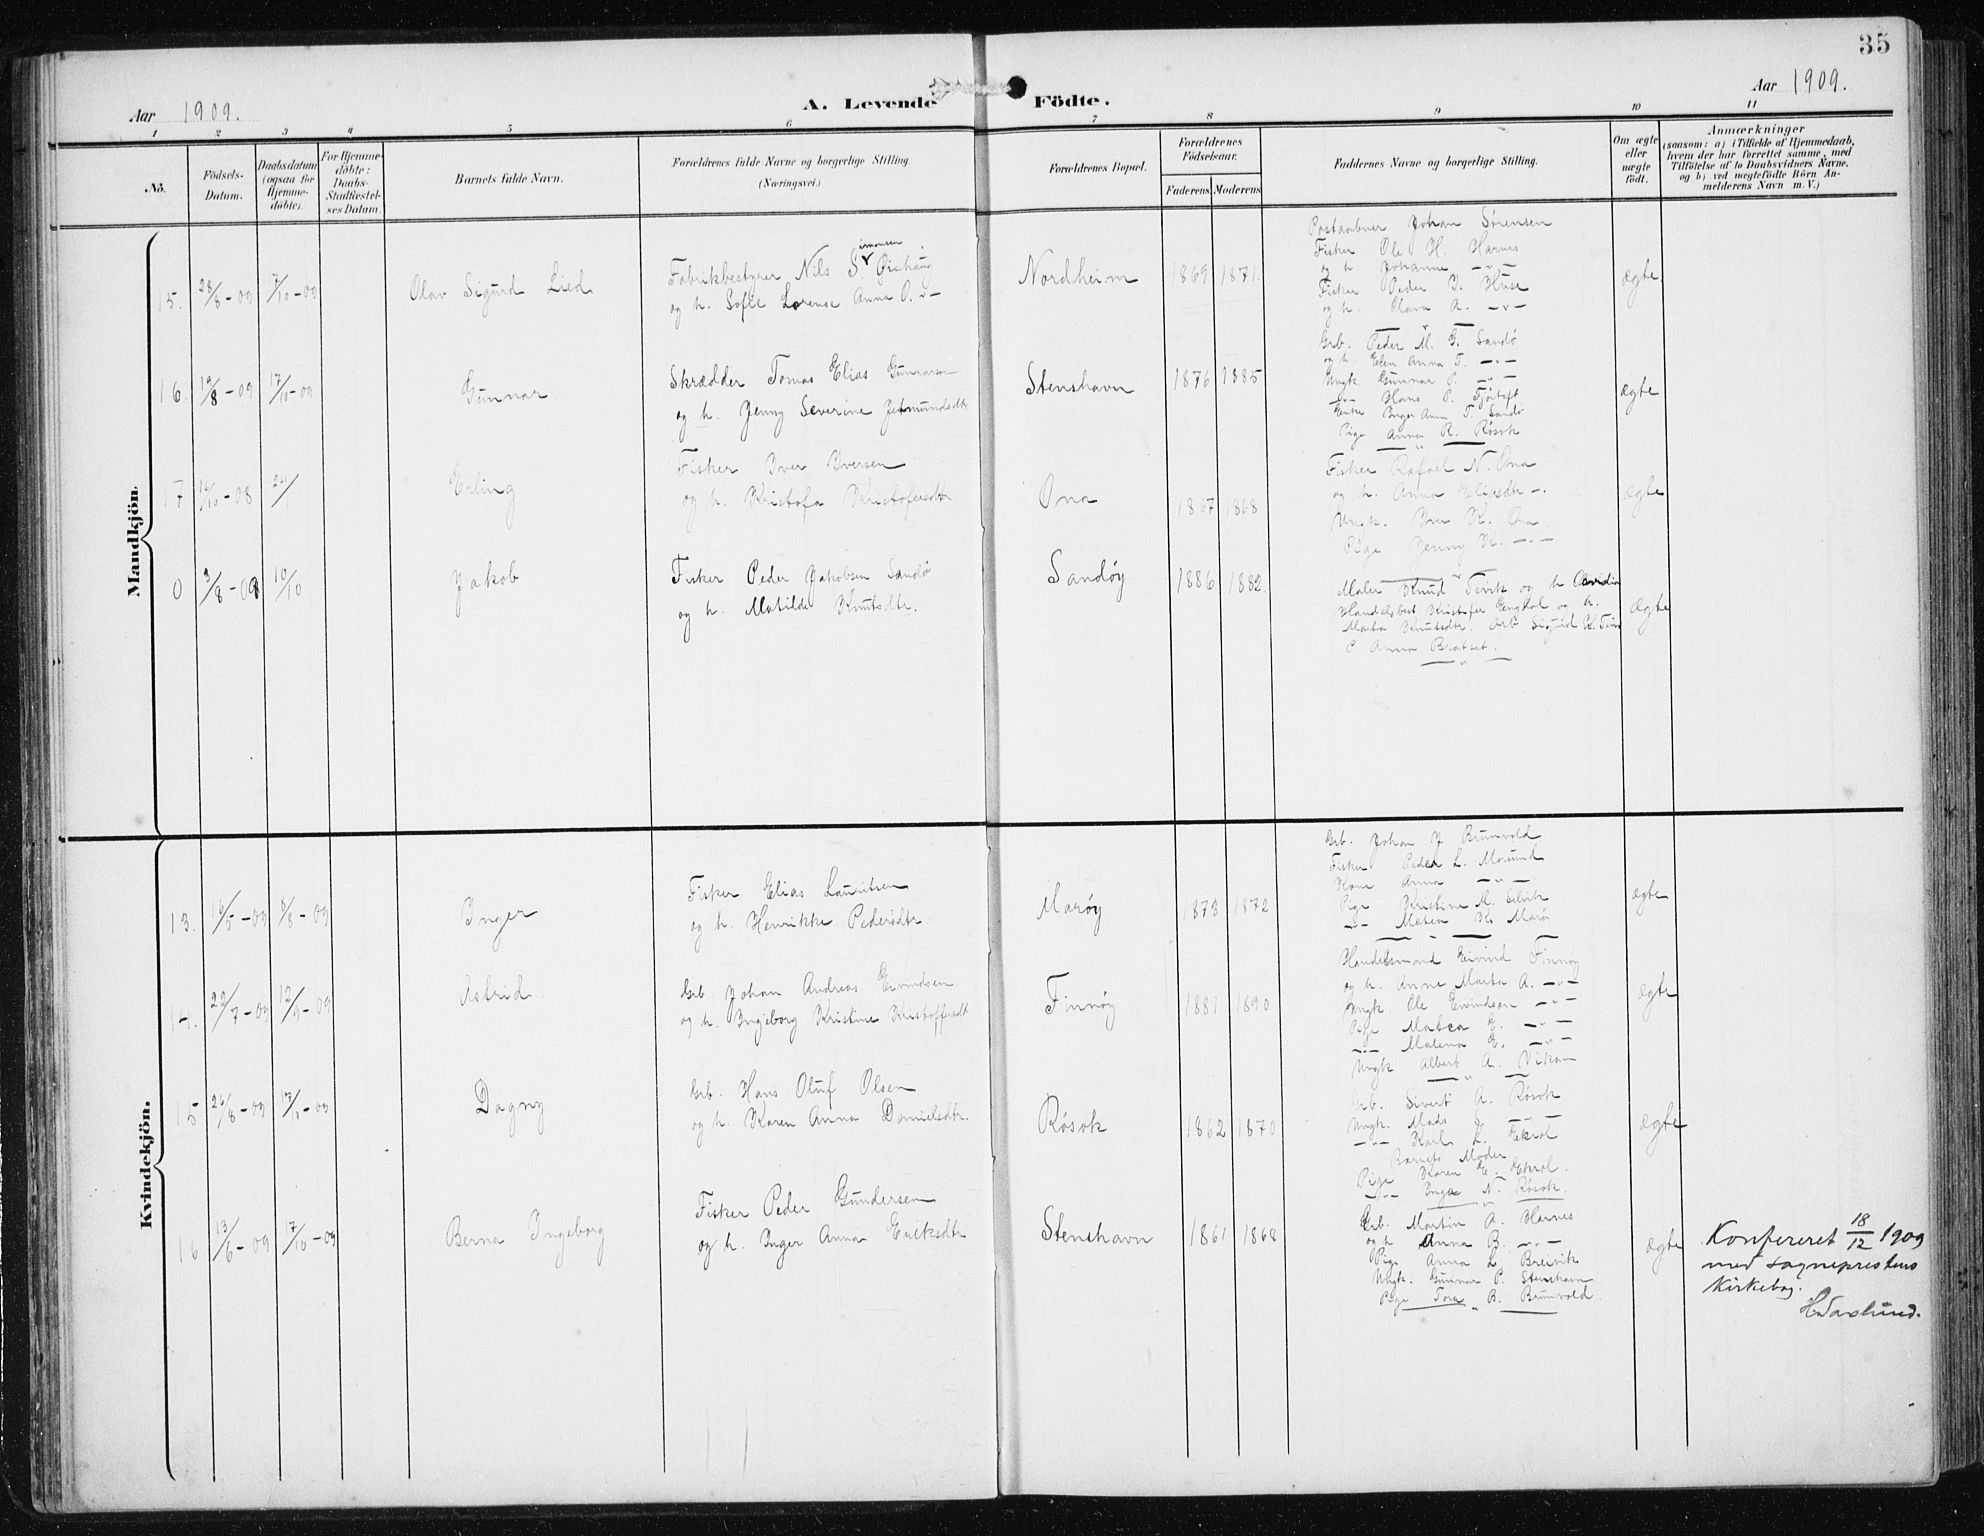 35
Aar 1909.
A. Levende Födte.
Aar 1909.
1 2 3 4 5 6 7 8 9 10 11
No.
Födsels-
Datum.
Daabsdatum
(ogsaa for
Hjemme-
döbte).
For Hjemme-
döbte:
Daabs-
Stadfæstel-
ses Datum
Barnets fulde Navn.
Forældrenes fulde Navne og borgerlige Stilling
(Næringsvei.)
Forældrenes Bopæl.
Forældrenes
Födselsaar.
Faderens Moderens
Faddernes Navne og borgerlige Stilling.
Om ægte
eller
uægte
födt.
Anmærkninger
(saasom: a) i Tilfælde af Hjemmedaab,
hvem der har forrettet samme, med
Tilföielse af to Daabsvidners Navne,
og b) ved uægtefödte Börn An-
melderens Navn m. V.)
Mandkjön.
15. 28/8-09 7/10-09
Olav Sigurd Lied
Fabrikbestyrer Nils Simonsen
og h. Sofie Lorense Anna O. -"-
Nordheim
1869 1871.
Postaabner Johan Sörensen
Fisker Ole H. Harnes
og h Johanne -"-
Fisker Peder J. Huse
og h. Olava A. -"-
ægte
16. 19/8-09 17/10-09
Gunnar
Skrædder Tomas Elias Gunnarsen
og h. Jenny Severine Jetmundsdtr
Stenshavn
1876 1885
Grb. Peder M. G. Sandö
og h. Elen Anna T. -"-
Ungk. Gunnar P. -"-
-"- Hans P. Fjörtoft
Enke Inger Anna T. Sandö
Pige Anna R. Rösok
ægte
17 24/1
Erling
Fisker Iver Iversen
og h. Kristofa Kristofersdtr.
Ona
1867 1868
Fisker Rafael N. Ona
og h. Anna Eliasdtr -"-
Ungk. Iver K. Ona
Pige Jenny K. -"-
ægte
0 3/8-08 10/10
Jakob
Fisker Peder Jakobsen Sandö
og h. Matilde Knutsdtr.
Sandöy
1886 1882.
Maler Knud Tevik og h
Handelsbest Kristofer Engdal og h.
Marta Knutsdtr. Arb Sigurd K.
P. Anna Bratset.
ægte
Kvindekjön.
13. 16/5-09 8/8-09
Inger
Fisker Elias Lauritsen
og h. Henrikke Pedersdtr.
Maröy
1873 1872
Grb. Johan J Brunvold
Fisker Peder L. Morsund
Kone Anna -"-
Pige Kristine M. Selvik
-"- Matea K. Marö
ægte
14. 22/7-09 12/9-09
Astrid
Grb. Johan Andreas Eivindsen
og h. Ingeborg Kristine Kristoffersdt
Finnöy
1881 1890
Handelsmand Eivind Finnöy
og h. Anne Marta A. -"-
Ungk. Ole Eivindsen -"-
Pige Matea E. -"-
-"- Matena E. -"-
Ungk. Albert A. Vikan
ægte
15 26/8-09
Dagny
Grb. Hans Oluf Olsen
og h. Karen Anna Danielsdtr.
Rösok
1862 1870
Grb. Sivert A. Rösok
Ungk. Mads S. -"-
-"- Karl L. Ekrol
Barnets Moder
Pige Karen E. Ekrol.
-"- Inga N. Rösok.
ægte
16 13/6-09 17/10-09
Berna Ingeborg
Fisker Peder Gundersen
og h. Inger Anna Eriksdtr
Stenshavn
1861 1868
Grb. Martin A. Harnes
og h Anna B. -"-
Pige Anna L. Breivik
Ungk. Gunnar P. Stenshavn
Pige Tora B. Brunvold.
ægte
Konfereret 18/12 1909
med sogneprestens
Kirkebog.